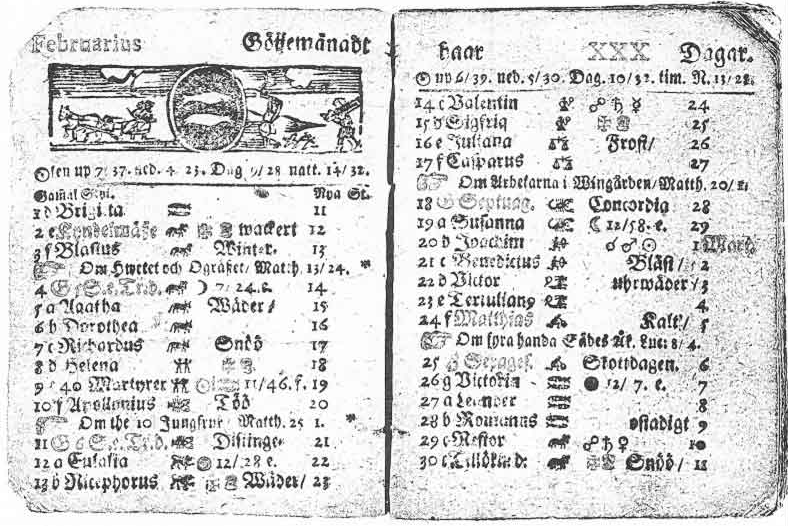 Februarius Göijemånadt
Solen up 7/37. ned. 4. 23. Dag 9/28 natt. 14/32.
Gamal Styl. Nya St.
1 d Brigitta 11
2 e Kyndelmässe wackert 12
3 f Blasius Winter. 13
Om Hwetet och Ogräset/ Matth. 13/24.
4 G 5 S.e.Tr.d. 7/24.e. 14
5 a Agatha Wäder/ 15
6 b Dorothea 16
7 c Richardus Snöö 17
8 d Helena 18
9 e 40 Martyrer 11/46.f. 19
10 f Apollonius Töö 20
Om the 10 Jungfrur Matth. 25 1.
11 G 6 S.e.Tr.d. Distinge. 21
12 a Eulalia 12/28 e. 22
13 b Nicephorus Wäder/ 23
haar XXX Dagar.
☉ up 6/39. ned. 5/30. Dag. 10/32. tim. N. 13/28.
14 c Valentin ☍ ♄ ☿ 24
15 d Sigfrid 25
16 e Juliana Frost/ 26
17 f Casparus 27
Om Arbetarna i Wingården/Matth. 20/1.
18 G Septuag. Concordia 28
19 a Susanna ☾ 12/58. e. 29
20 b Joachim ☌ ♂ ☉ 1 Mart.
21 c Benedictus Bläst/ 2
22 d Victor uhrwäder/ 3
23 e Tertuliang 4
24 f Matthias Kalt/ 5
Om fyra handa Sädes Åk. Luc: 8/4.
25 G Sexages. Skottdagen. 6
26 g Victorin ● 12/7. e. 7
27 a Leander 8
28 b Romanus ostadigt 9
29 c Nestor ☍ ♄ ♀ 10
30 c Tillökind: Snöö/ 11